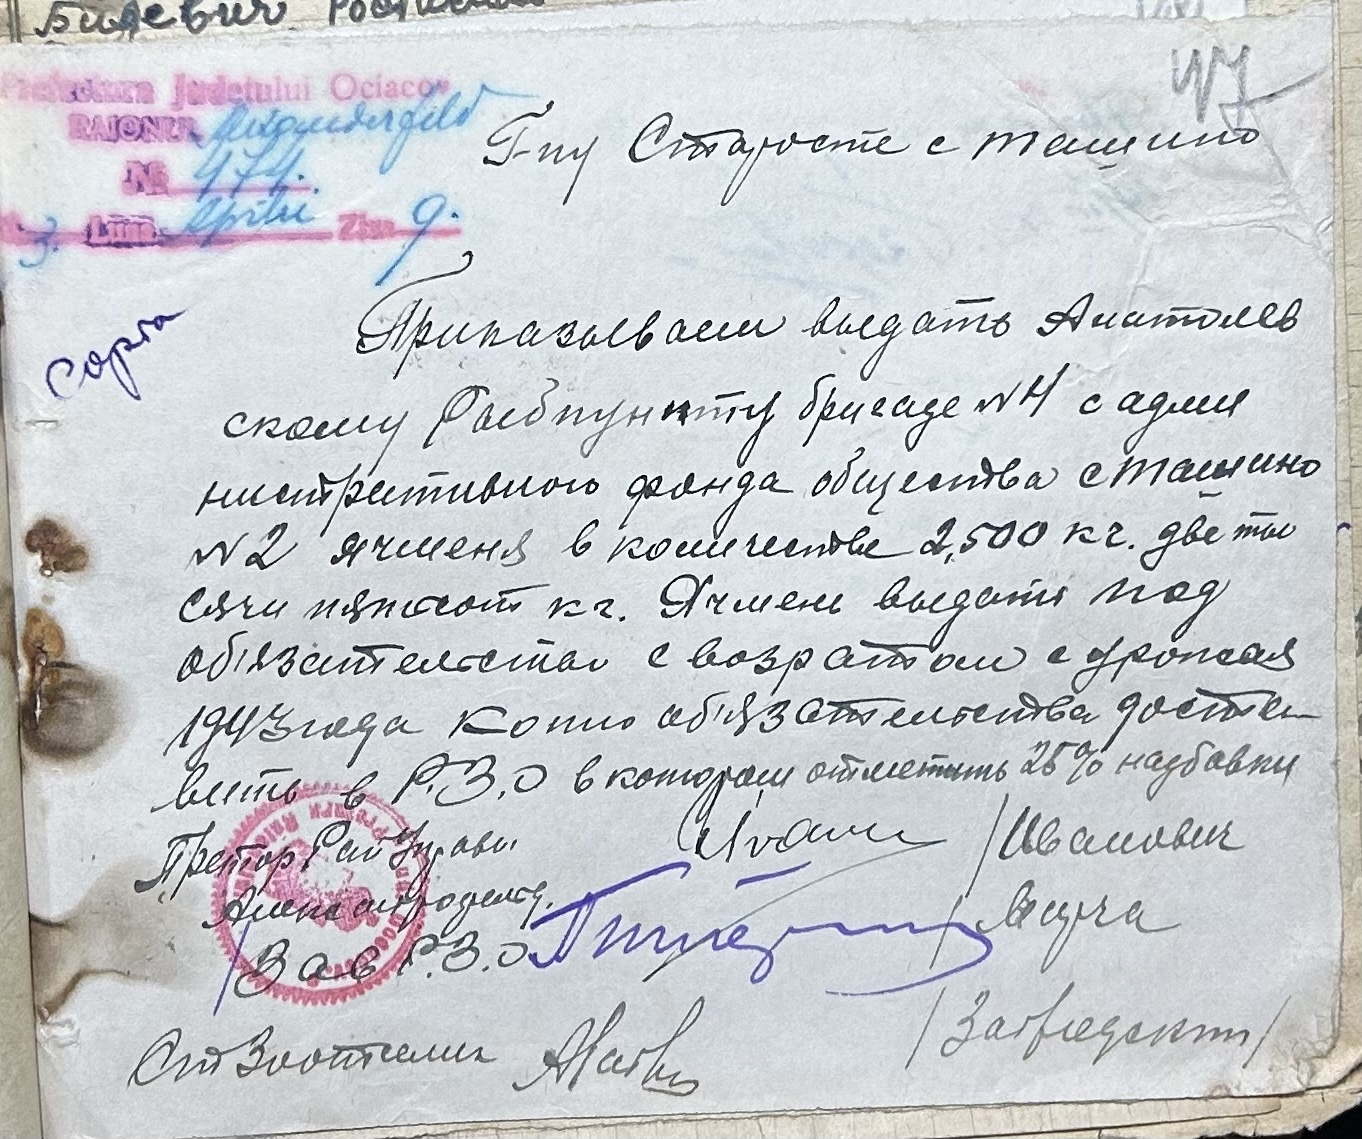 Бидевич
47
Prefectura Judeţului Ociacov
RAIONUL Alexanderfeld
№ 474.
3. Luna Aprilie Ziua 9.
Г-ну Старосте с Ташино
Приказываем выдать Анатолев
скому Рыбпункту бригаде №4 с адми
нистративного фонда общества с Ташино
№2 ячменя в количестве 2,500 кг. две ты
сячи пятьсот кг. Ячмень выдать под
обязательство с возратом с урожая
1943 года Копию обязательства доста
вить в Р.З.О в котором отметить 25% надбавки
Претор Рай Управы /Иванович
Александрофельд.
/Зав Р.З.О /
Ст Зоотехник / /